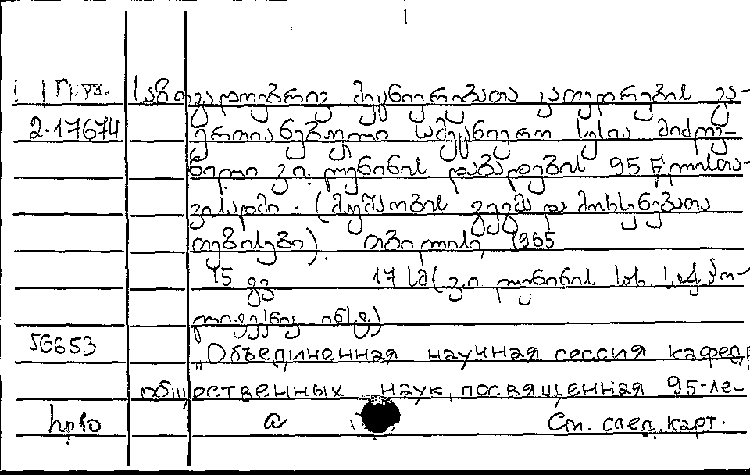 1
Груз. საზოგადოებრივ მეცნიერებათა კათედრების გა-
2.17674 ერთიანებული სამეცნიერო სესია მიძღვ-
ნილი ვ.ი. ლენინის დაბადების 95 წლისთა-
ვისადმი. (მუშაობის გეგმა და მოხსენებათა
თეზისები). თბილისი, 1965
15 გვ 17 სმ (ვ.ი. ლენინის სახ. საქ. პო-
ლიტექნიკ. ინსტ.)
56653 „Объединенная научная сессия кафедр
общественных наук, посвященная 95-ле-
a См. след. карт.